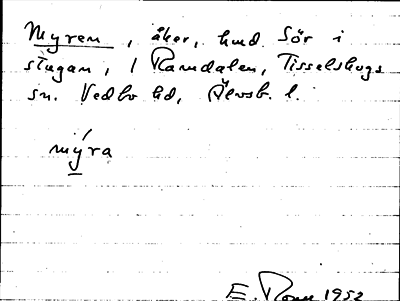 Myren, åker, hmd Sör i
stugan, 1 Ramdalen, Tisselskogs
sn. Vedbo hd, Älvsb. l.
mýra
E. 1952